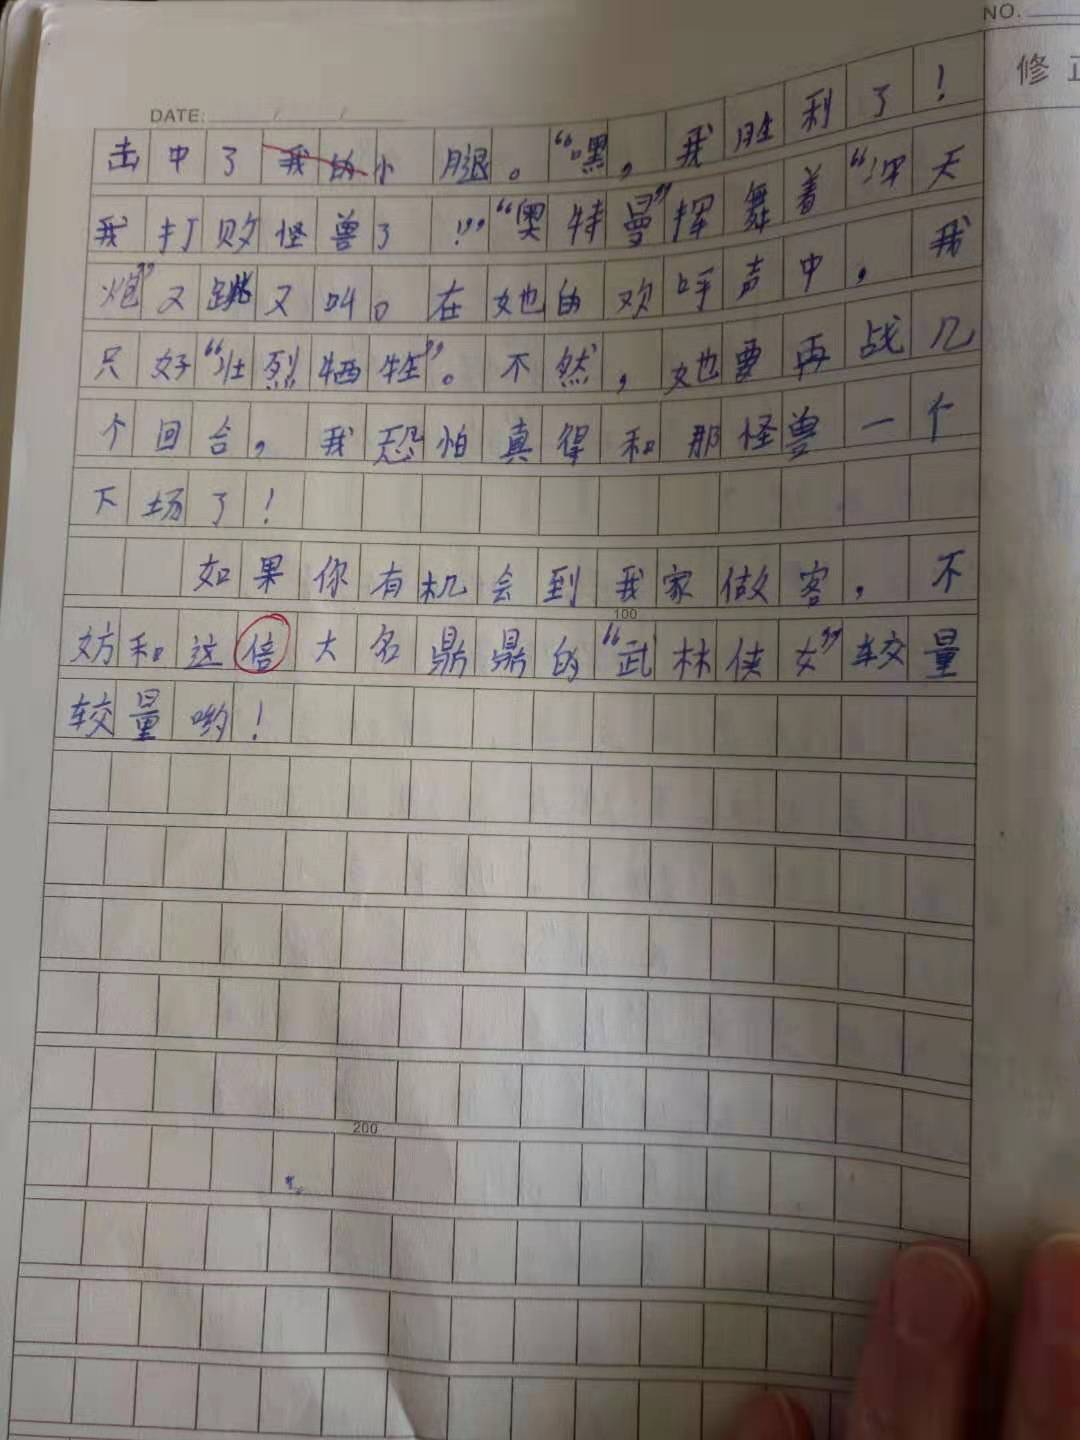 NO.
修正
DATE: / /
击中了我的小腿。“嘿，我胜利了！
我打败怪兽了！”“奥特曼”挥舞着“冲天
炮”又跳又叫。在她的欢呼声中，我
只好“壮烈牺牲”。不然，她要再战几
个回合，我恐怕真得和那怪兽一个
下场了！
如果你有机会到我家做客，不
100
妨和这倍大名鼎鼎的“武林侠女”较量
较量哟！
200